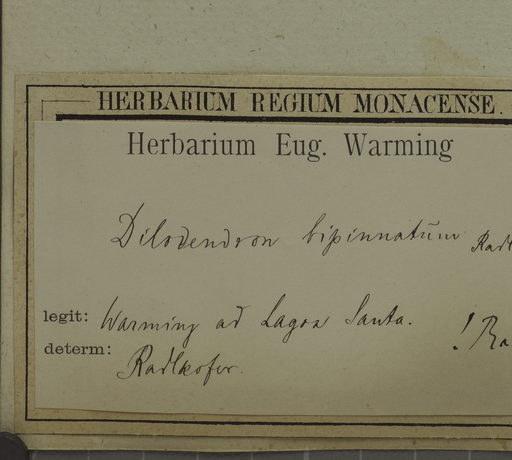 HERBARIUM REGIUM MONACENSE.
Herbarium Eug. Warming
Dilodendron bipinnatum Radl
legit: Warming ad Lagoa Santa.
! Ra
determ: Radlkofer.